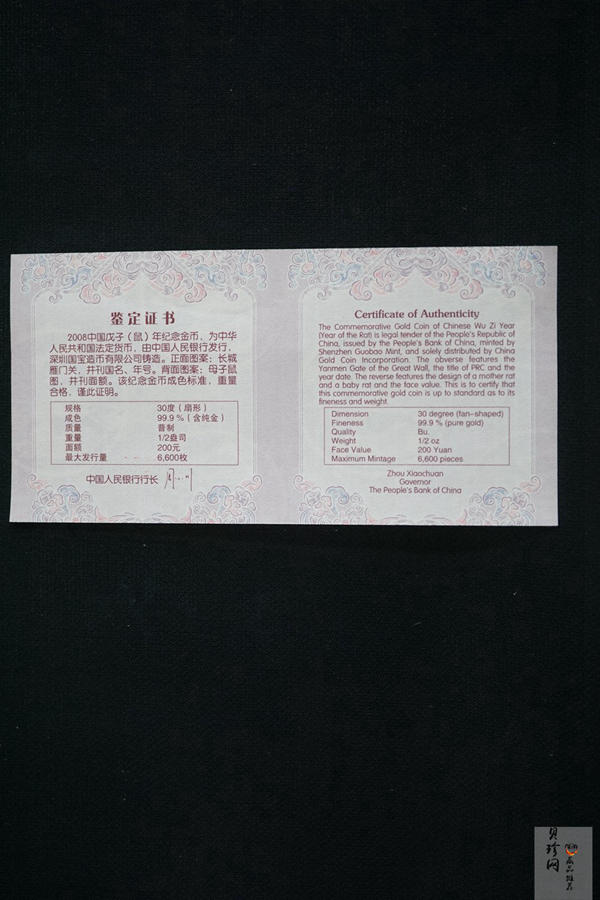 鉴定证书
2008中国戊子（鼠）年纪念金币，为中华
人民共和国法定货币，由中国人民银行发行，
深圳国宝造币有限公司铸造。正面图案：长城
雁门关，并刊国名、年号。背面图案：母子鼠
图，并刊面额。该纪念金币成色标准，重量
合格，谨此证明。
规格 30度（扇形）
成色 99.9％（含纯金）
质量 普制
重量 1/2盎司
面额 200元
最大发行量 6,600枚
中国人民银行行长
Certificate of Authenticity
The Commemorative Gold Coin of Chinese Wu Zi Year
(Year of the Rat) is legal tender of the People's Republic of
China, issued by the People's Bank of China, minted by
Shenzhen Guobao Mint, and solely distributed by China
Gold Coin Incorporation. The obverse features the
Yanmen Gate of the Great Wall, the title of PRC and the
year date. The reverse features the design of a mother rat
and a baby rat and the face value. This is to certify that
this commemorative gold coin is up to standard as to its
fineness and weight.
Dimension 30 degree (fan-shaped)
Fineness 99.9 % (pure gold)
Quality Bu.
Weight 1/2 oz
Face Value 200 Yuan
Maximum Mintage 6,600 pieces
Zhou Xiaochuan
Governor
The People's Bank of China
贝珍网